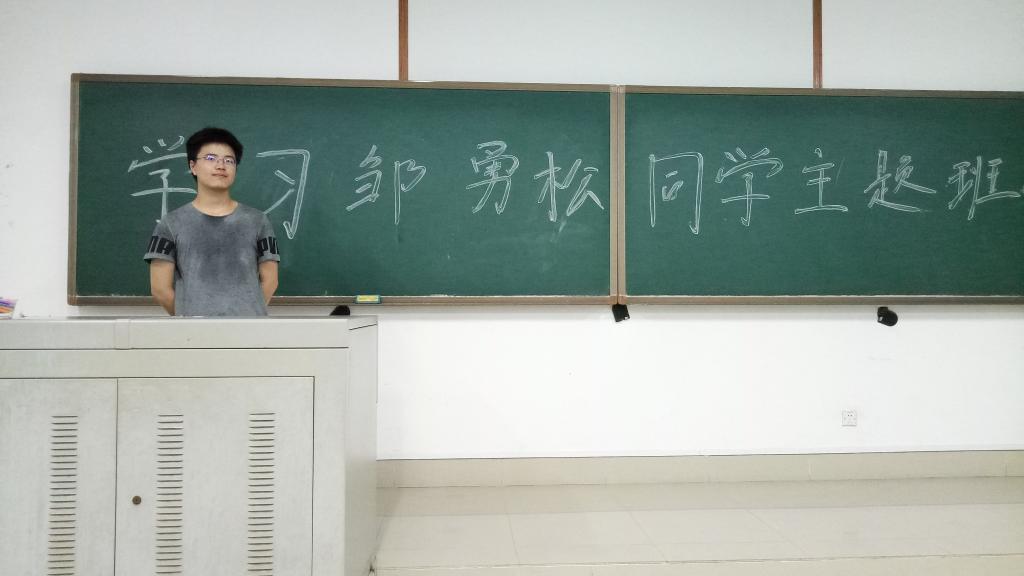 学习邹勇松同学主题班